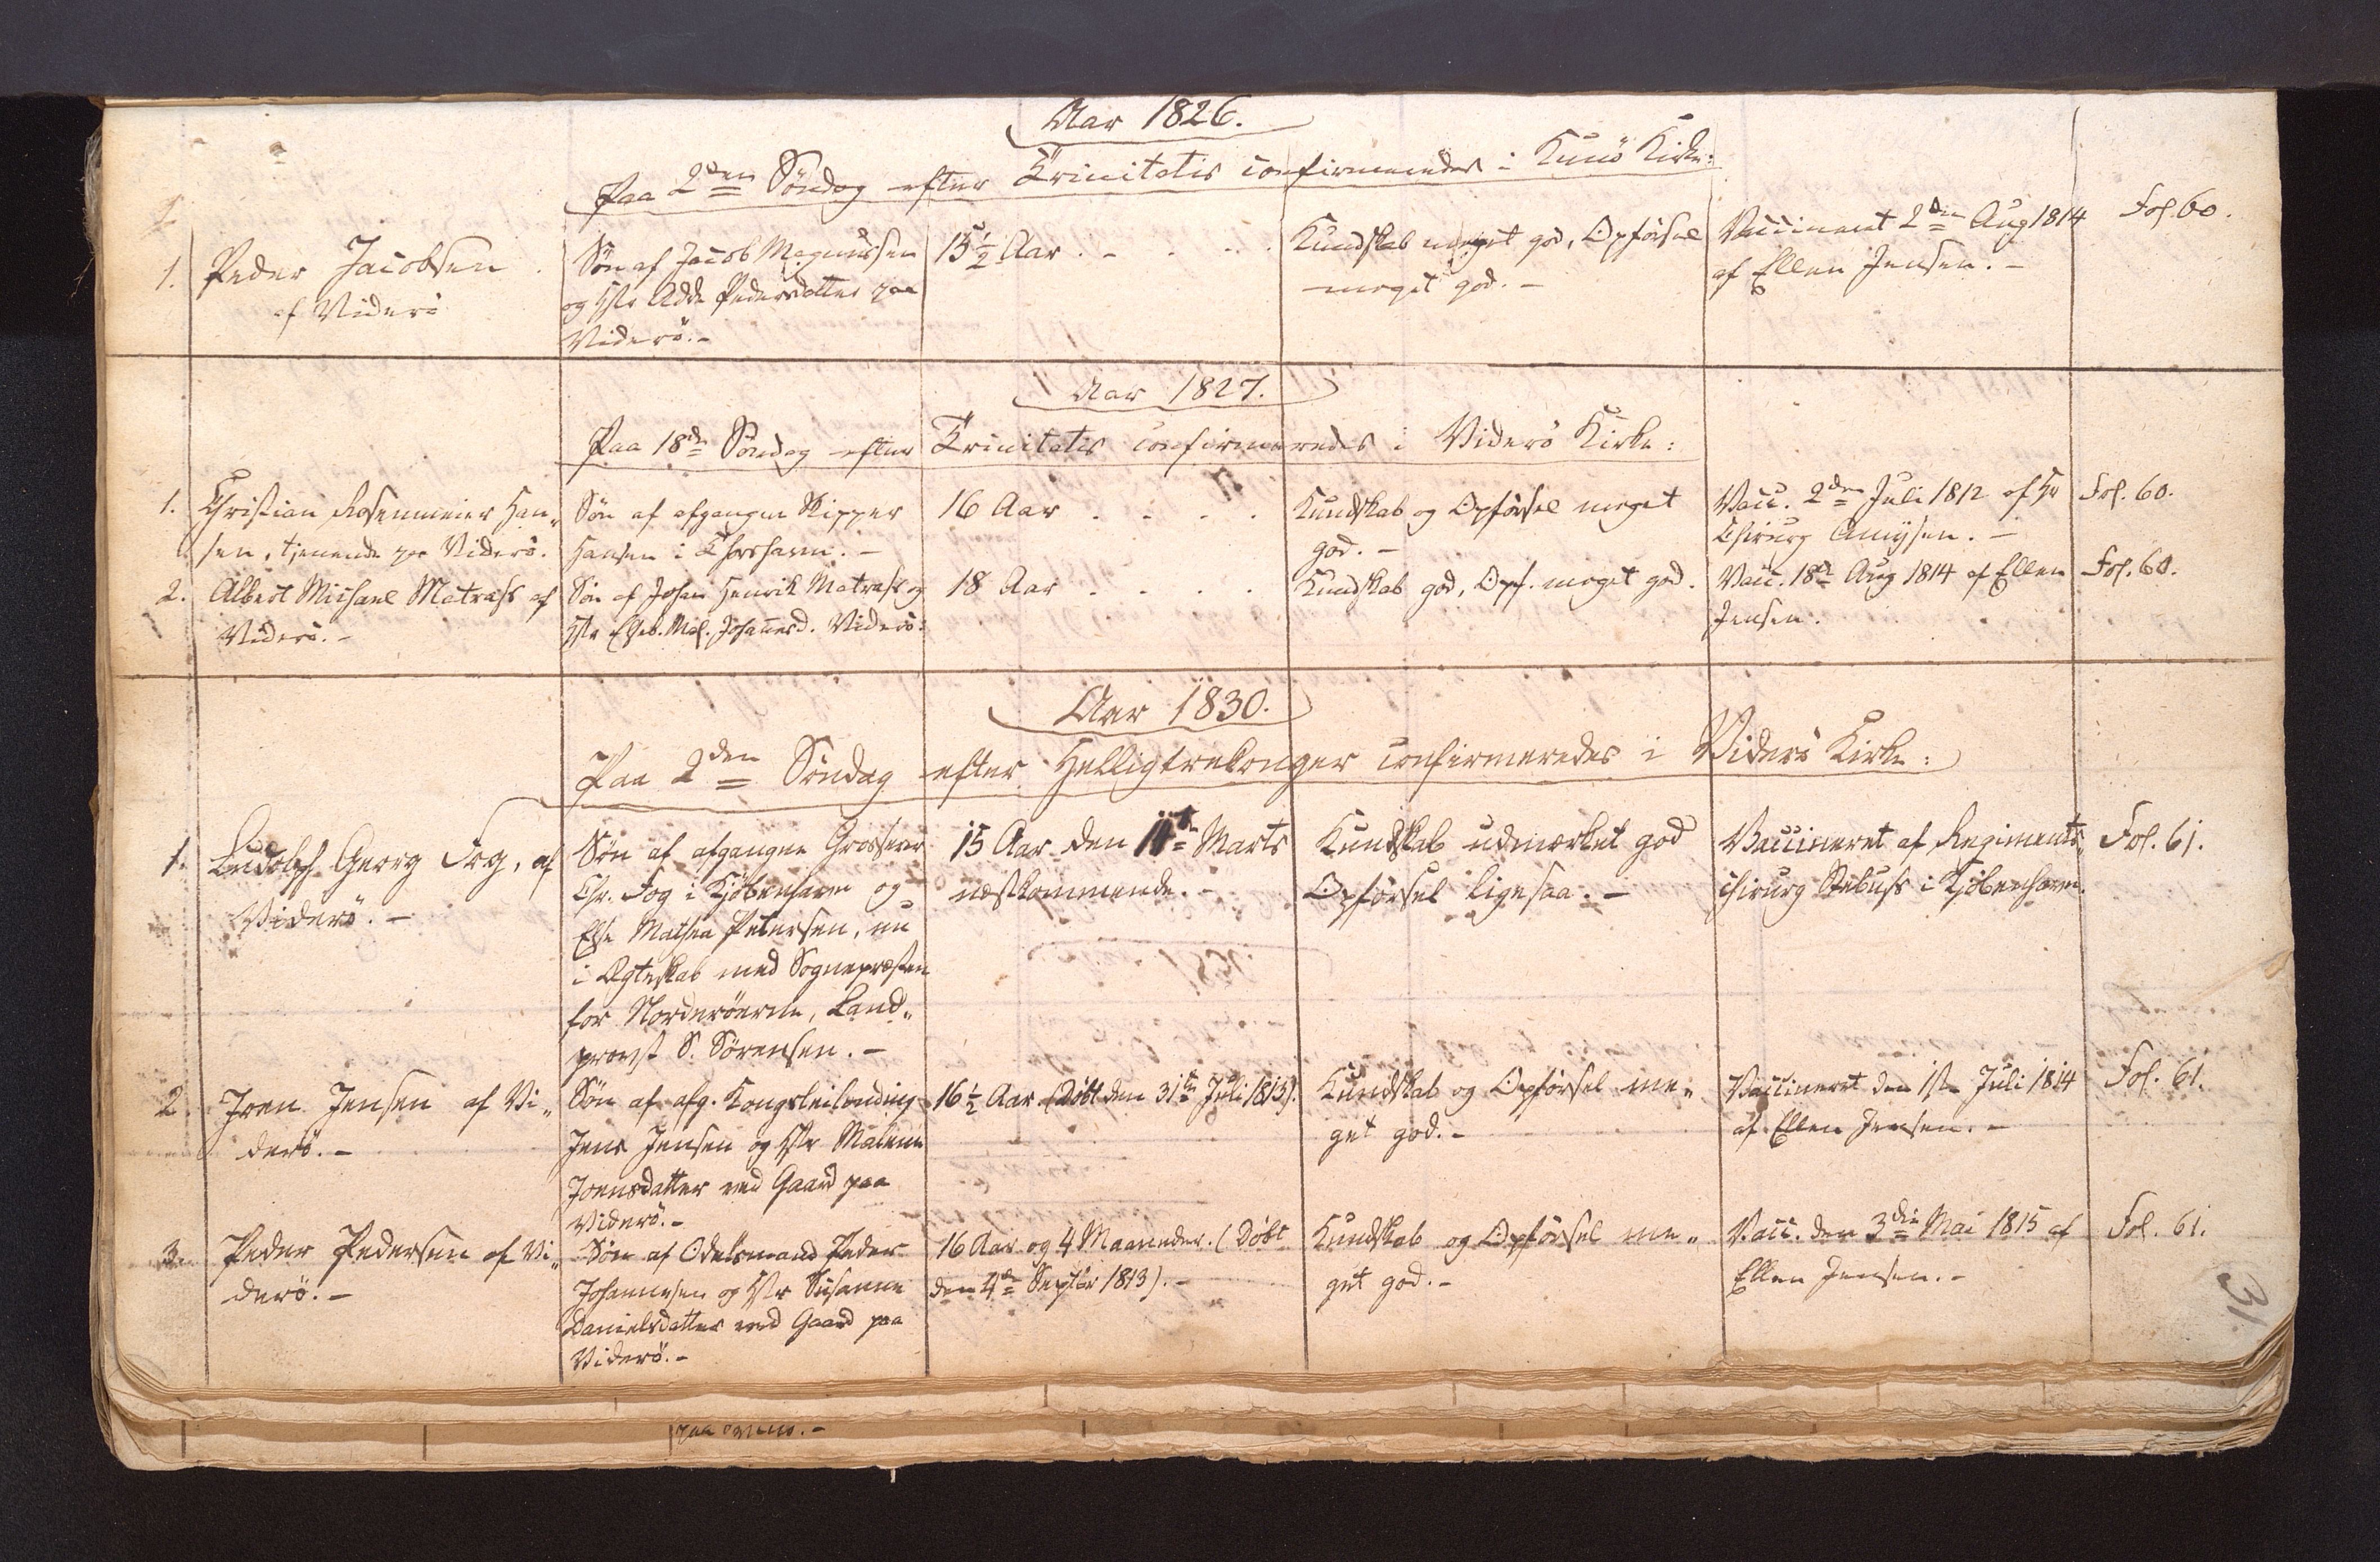 Aar 1826.
Paa 2den Söndag efter Trinitatis confirmeredes i Kunö Kirke:
1. Peder Jacobsen
af Viderö
Søn af Jacob Magnussen
og Hstr Adde Pedersdatter paa
Viderö.-
15½ Aar . - . . .
Kundskab meget god, Opförsel
meget god. -
Vaccineret 2den Aug 1814
af Ellen Jensen. -
Fol. 60.
Aar 1827.
Paa 18de Söndag efter Trinitatis confirmeredes i Viderö Kirke:
1. Christian Rosenmeier Han„
sen, tjenende paa Viderö.
Søn af afgangne Skipper
Hansen i Thorshavn. -
16 Aar . . . .
Kundskab og Opförsel meget
god. -
Vacc. 2den Juli 1812 af Hr
Chirurg Amyssen. -
Fol. 60.
2. Albert Michael Matrass af
Viderö. -
Søn af Johan Henrik Matrass og
Hstr Elseb. Mal. Johannesd. Viderö:
18 Aar . . . .
Kundskab god, Opf. meget god.
Vacc. 18de Aug 1814 af Ellen
Jensen.
Fol. 60.
Aar 1830.
Paa 2den Söndag efter Helligtrekonger confirmeredes i Viderö Kirke:
1. Ludolph Georg Fog, af
Viderö. -
Søn af afgangne Grosserer
Chr. Fog i Kjöbenhavn og
Else Mathea Petersen, nu
i Ægteskab med Sognepræsten
for Norderöerne, Land„
provst S. Sörensen. -
15 Aar den 11te Marts
næstkommende. -
Kundskab udmærket god
Opförsel ligesaa. -
Vaccineret af Regiments„
chirurg Rebuss i Kjöbenhavn.
Fol. 61.
2. Joen Jensen af Vi„
derö. -
Søn af afg. Kongsleilending
Jens Jensen og Hstr Malene
Joensdatter ved Gaard paa
Viderö. -
16½ Aar (Döbt den 31te Juli 1813).
Kundskab og Opförsel me„
get god. -
Vaccineret den 1ste Juli 1814
af Ellen Jensen. -
Fol. 61.
3. Peder Pedersen af Vi„
derö. -
Søn af Odelsmand Peder
Johannesen og Hstr Susanne
Danielsdatter ved Gaard paa
Viderö. -
16 Aar og 4 Maaneder. (Döbt
den 4de Septbr 1813). -
Kundskab og Opförsel me„
get god. -
Vacc. den 3die Mai 1815 af
Ellen Jensen. -
Fol. 61.
31